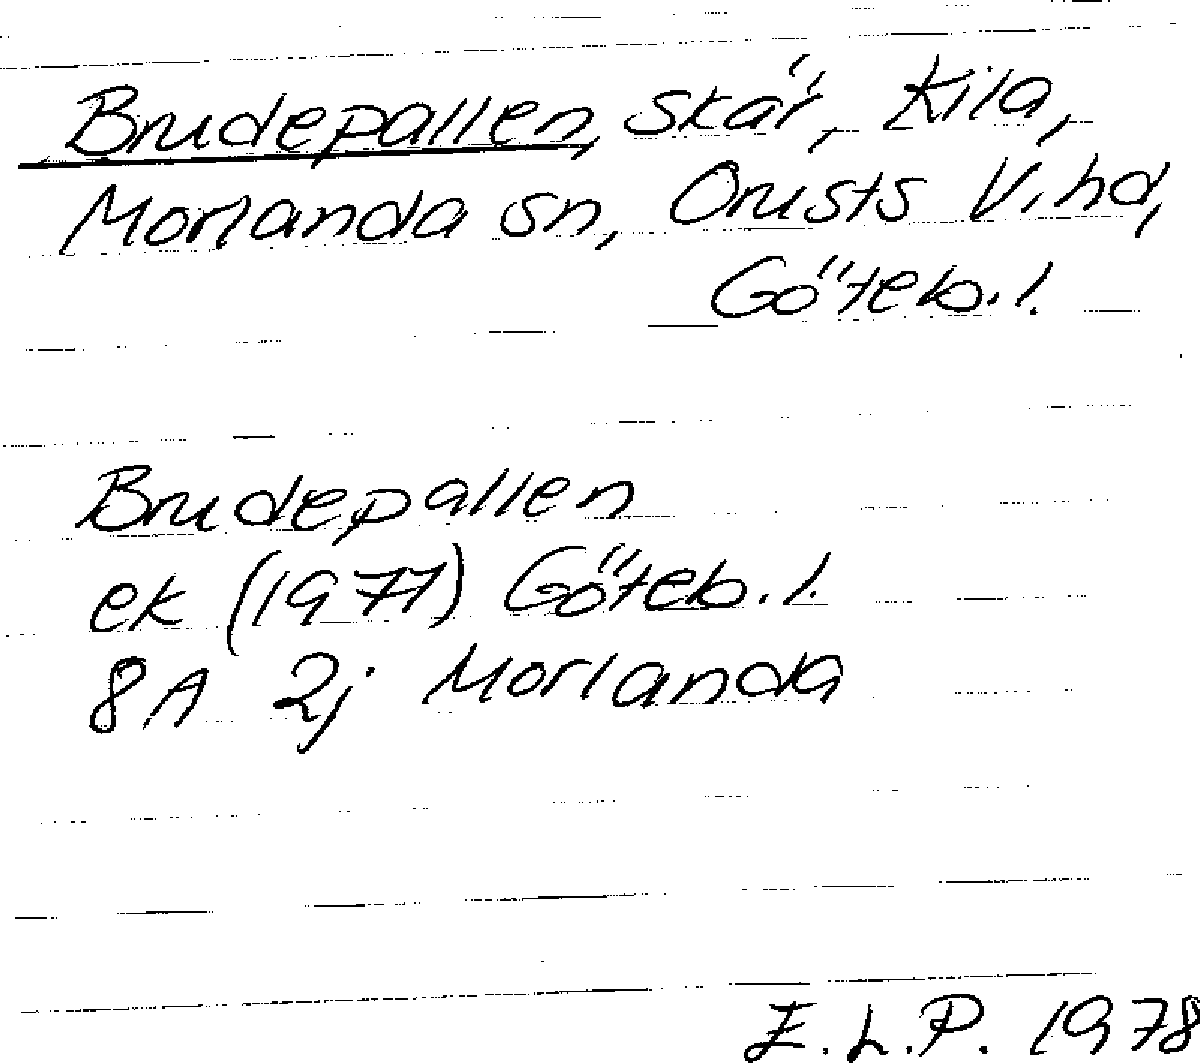 Brudepallen, skär, Kila,
Morlanda sn, Orusts V. hd,
Göteb. l.
Brudepallen
ek (1977) Göteb. l.
8A 2j Morlanda
E.L.P. 1978